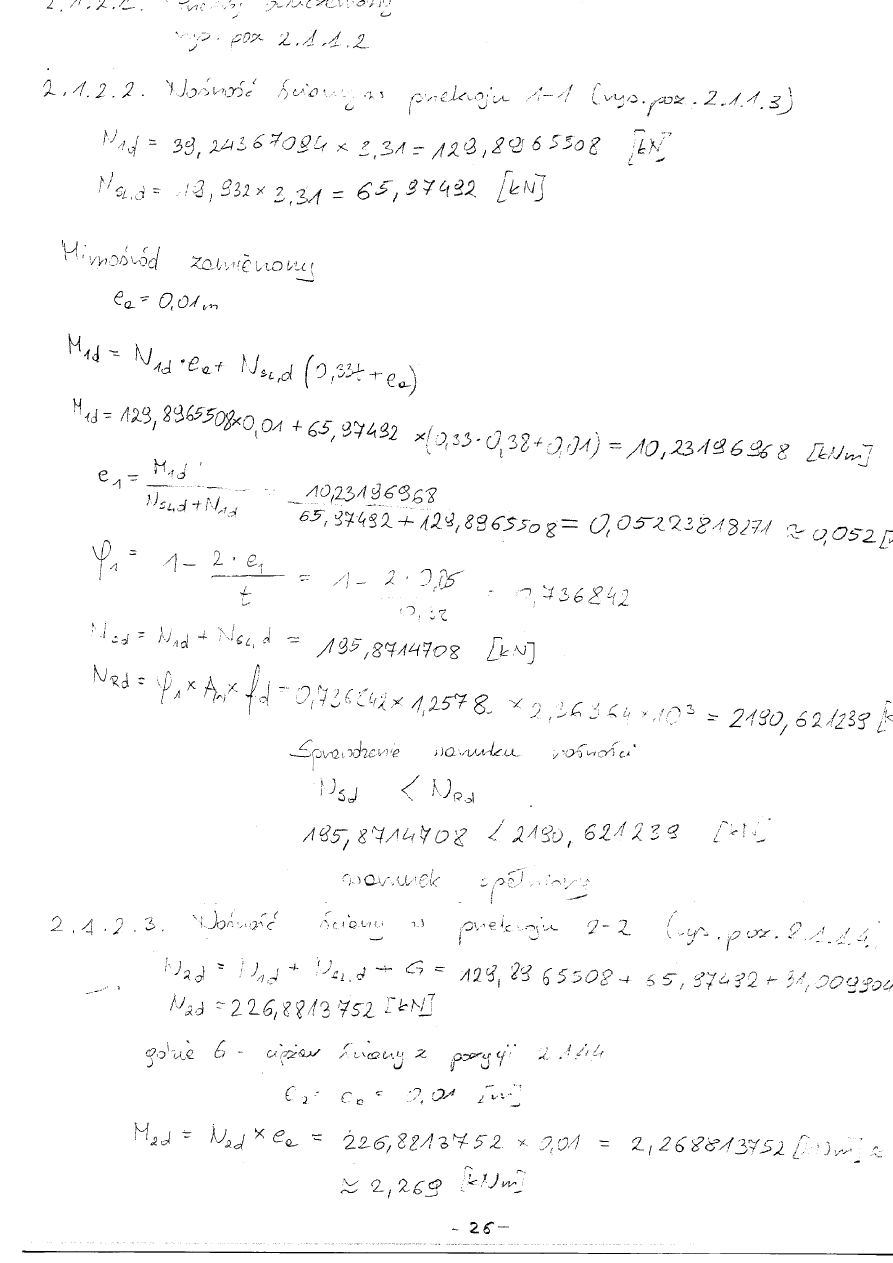 2.1.2.1.
rys. poz 2.1.1.2
2.1.2.2. Nośność ściany w przekroju 1-1 (rys. poz. 2.1.1.3)
N1d = 39,24367094 × 3,31 = 129,8965508 [kN]
NSL,d = 19,932 × 3,31 = 65,97492 [kN]
Mimośród zamieniony
ea = 0,01m
M1d = N1d · ea + NSL,d (0,33t + ea)
M1d = 129,8965508×0,01 + 65,97492 ×(0,33·0,38+0,01) = 10,23196968 [kNm]
e1 = M1d / NSL,d + N1d = 10,23196968 / 65,97492 + 129,8965508 = 0,05223818271 ≈ 0,052 [
φ1 = 1 - 2·e1 / t = 1 - 2·0,05 / 0,38 = 0,736842
NSd = N1d + NSL,d = 195,8714708 [kN]
NRd = φ1 × Am × fd = 0,736842 × 1,2578 × 2,36364 × 10³ = 2190,621239 [k
Sprawdzenie warunku nośności
NSd < NRd
195,8714708 < 2190,621239 [kN]
warunek spełniony
2.1.2.3. Nośność ściany w przekroju 2-2 (rys. poz. 2.1.1.4)
N2d = N1d + NSL,d + G = 129,8965508 + 65,97492 + 31,009904
N2d = 226,8813752 [kN]
gdzie G - ciężar ściany z pozycji 2.1.1.4
e2 = ea = 0,01 [m]
M2d = N2d × ea = 226,8813752 × 0,01 = 2,268813752 [kNm] ≈
≈ 2,269 [kNm]
- 26 -